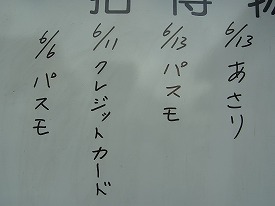 6/13 あさり
6/13 パスモ
6/11 クレジットカード
6/6 パスモ